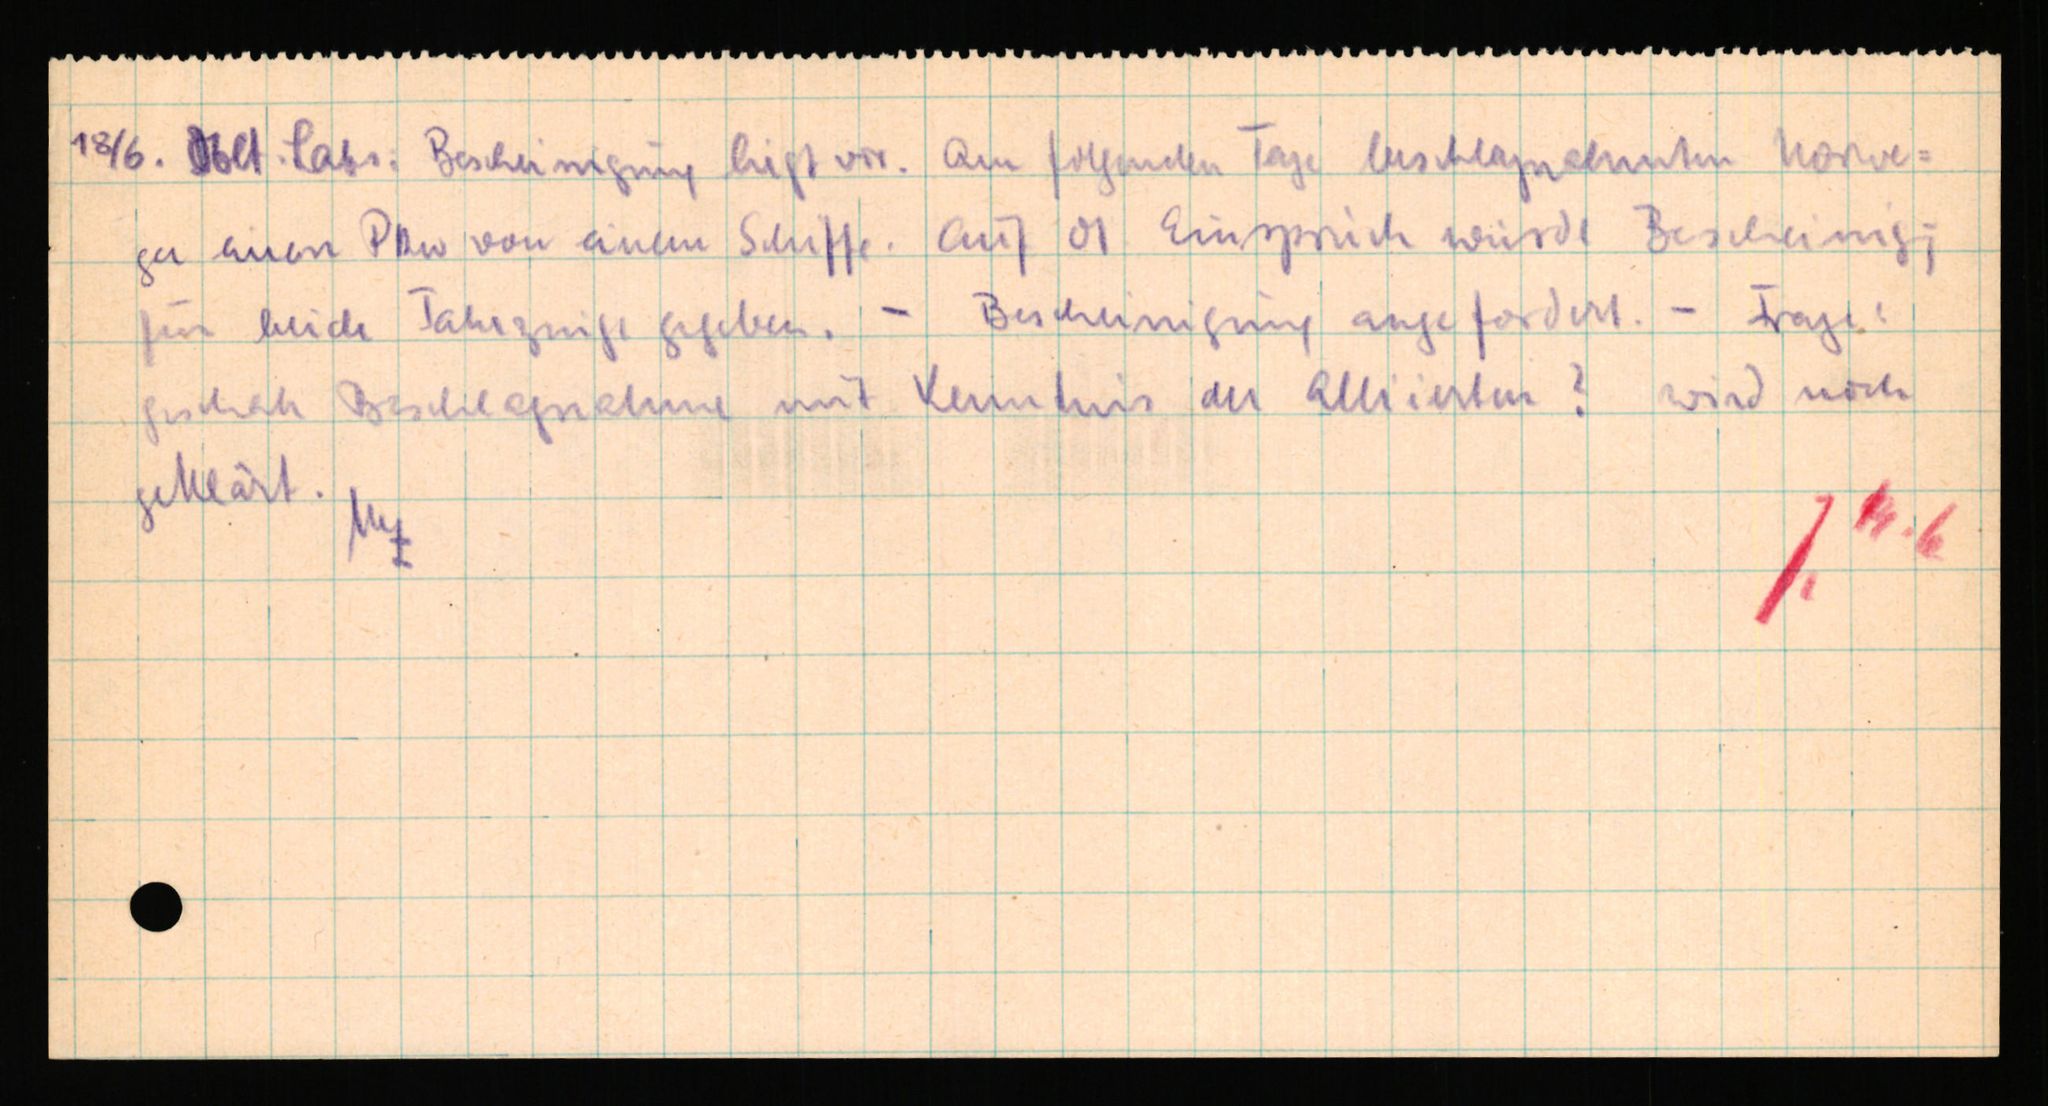 18/6. Oblt. Lahs: Bescheinigung liegt vor. Am folgenden Tage beschlagnahmten Norwe=
ger einen PKW von einem Schiffe. Auf dt. Einspruch wurde Bescheinig;
für beide Fahrzeuge gegeben. – Bescheinigung angefordert. – Frage:
geschah Beschlagnahme mit Kenntnis der Alliierten? wird noch
geklärt.